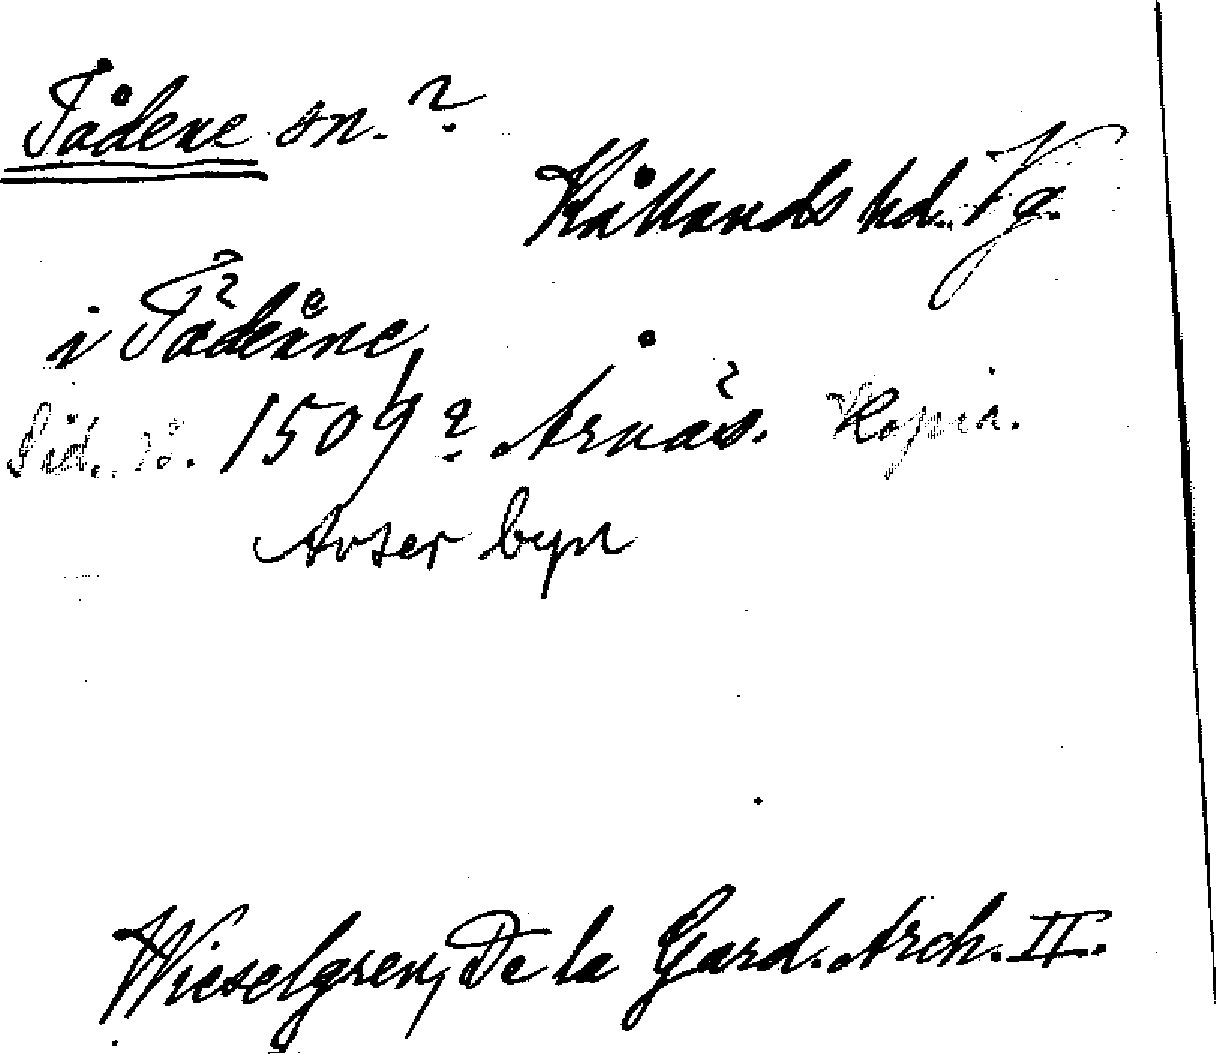 Tådene sn. ?
Kållands hd. Vg.
i Tådene
Sid. 18. 1509? Årnäs. Kopia.
Avser byn
Wieselgren, De la Gard. Arch. II.